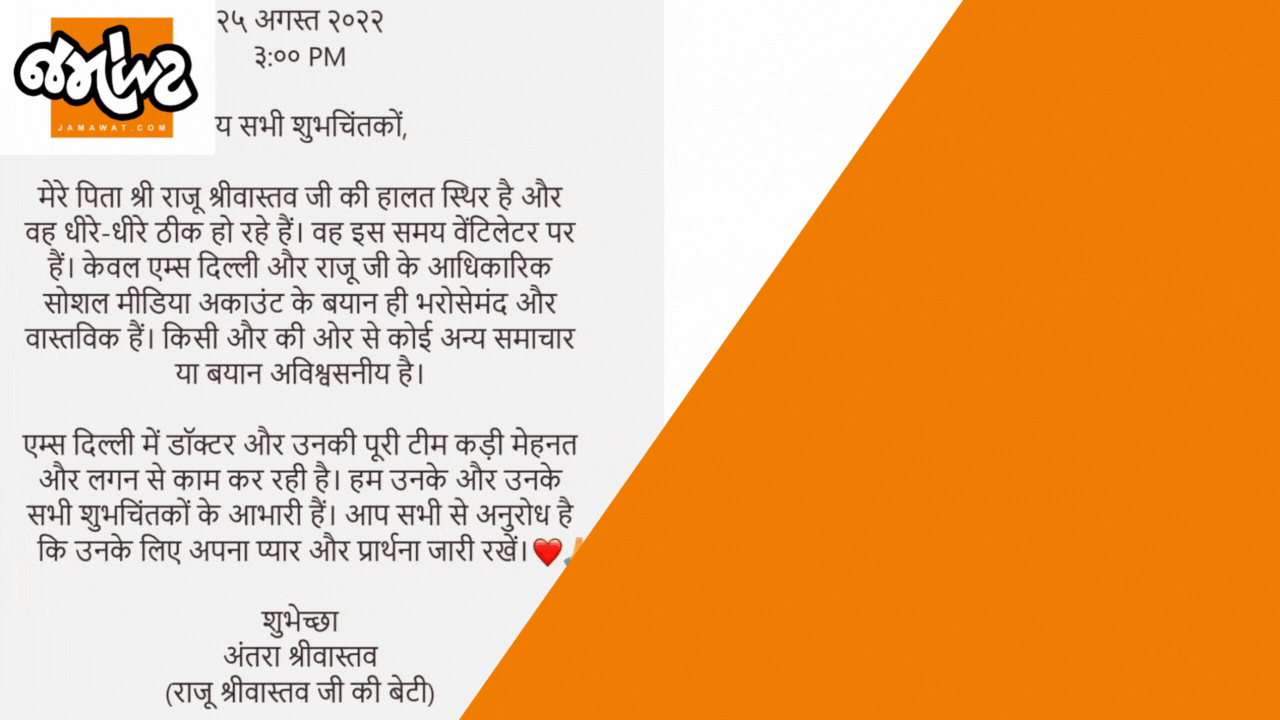 જમાવટ
JAMAWAT.COM
२५ अगस्त २०२२
३:०० PM
य सभी शुभचिंतकों,
मेरे पिता श्री राजू श्रीवास्तव जी की हालत स्थिर है और
वह धीरे-धीरे ठीक हो रहे हैं। वह इस समय वेंटिलेटर पर
हैं। केवल एम्स दिल्ली और राजू जी के आधिकारिक
सोशल मीडिया अकाउंट के बयान ही भरोसेमंद और
वास्तविक हैं। किसी और की ओर से कोई अन्य समाचार
या बयान अविश्वसनीय है।
एम्स दिल्ली में डॉक्टर और उनकी पूरी टीम कड़ी मेहनत
और लगन से काम कर रही है। हम उनके और उनके
सभी शुभचिंतकों के आभारी हैं। आप सभी से अनुरोध है
कि उनके लिए अपना प्यार और प्रार्थना जारी रखें।❤️
शुभेच्छा
अंतरा श्रीवास्तव
(राजू श्रीवास्तव जी की बेटी)